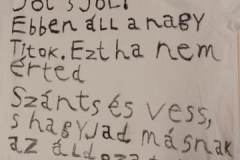 Jól s jól!
Ebben áll a nagy
Titok. Ezt ha nem
érted
Szánts és vess,
s hagyjad másnak
az